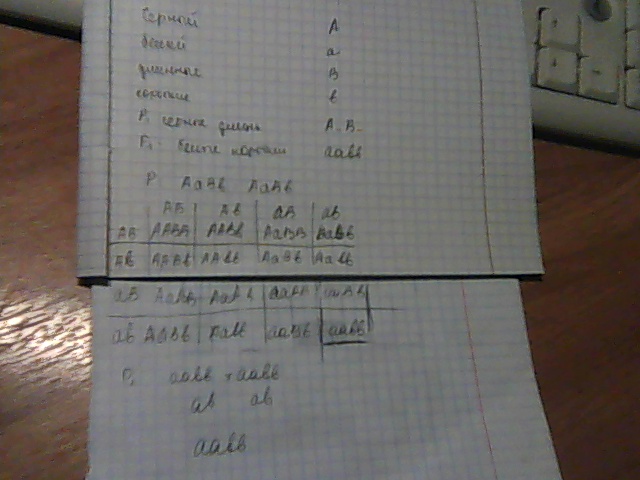 Черный A
белый a
длинные B
короткие b
P. черные длинн A-B-
F1. белые короткие aabb
P AaBb AaBb
AB Ab aB ab
AB AABB AABb AaBB AaBb
Ab AABb AAbb AaBb Aabb
aB AaBB AaBb aaBB aaBb
ab AaBb Aabb aaBb aabb
aabb × aabb
ab ab
aabb